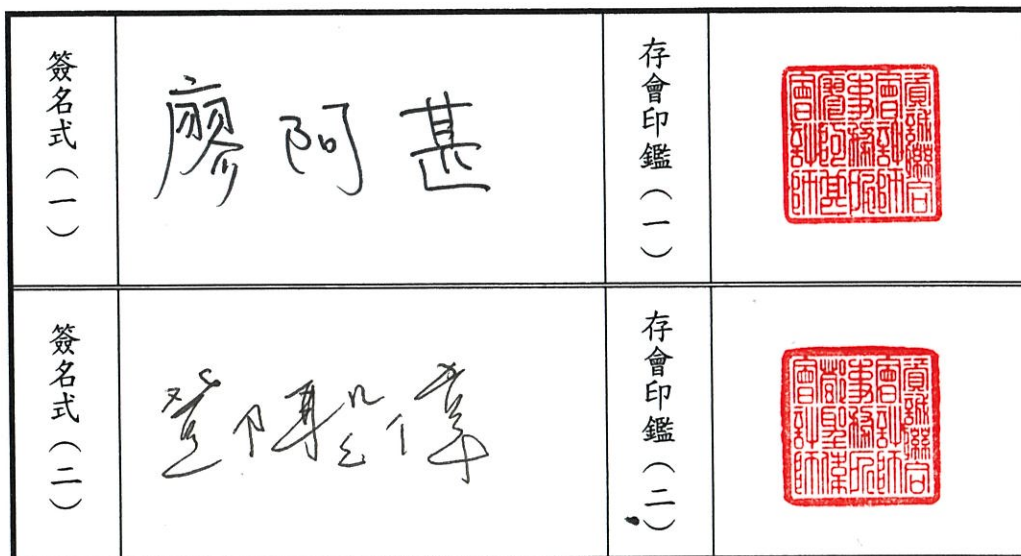 簽名式（一）
廖阿甚
存會印鑑（一）
資誠聯合
會計師
事務所
廖阿甚
會計師
簽名式（二）
鄧聖偉
存會印鑑（二）
資誠聯合
會計師
事務所
鄧聖偉
會計師